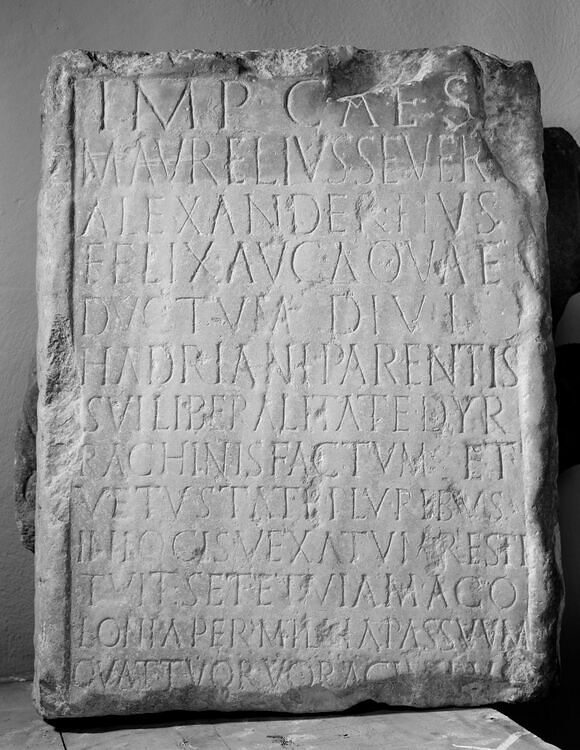 IMP CAES
M AVRELIVS SEVER
ALEXANDER PIVS
FELIX AVG AQVAE
DVCTVM DIVI
HADRIANI PARENTIS
SVI LIBERALITATE DYR
RACHINIS FACTVM ET
VETVSTATE PLVRIBVS
IN LOCIS VEXATVM RESTI
TVIT SET ET VIAM A CO
LONIA PER MILLIA PASSVVM
QVATTVOR